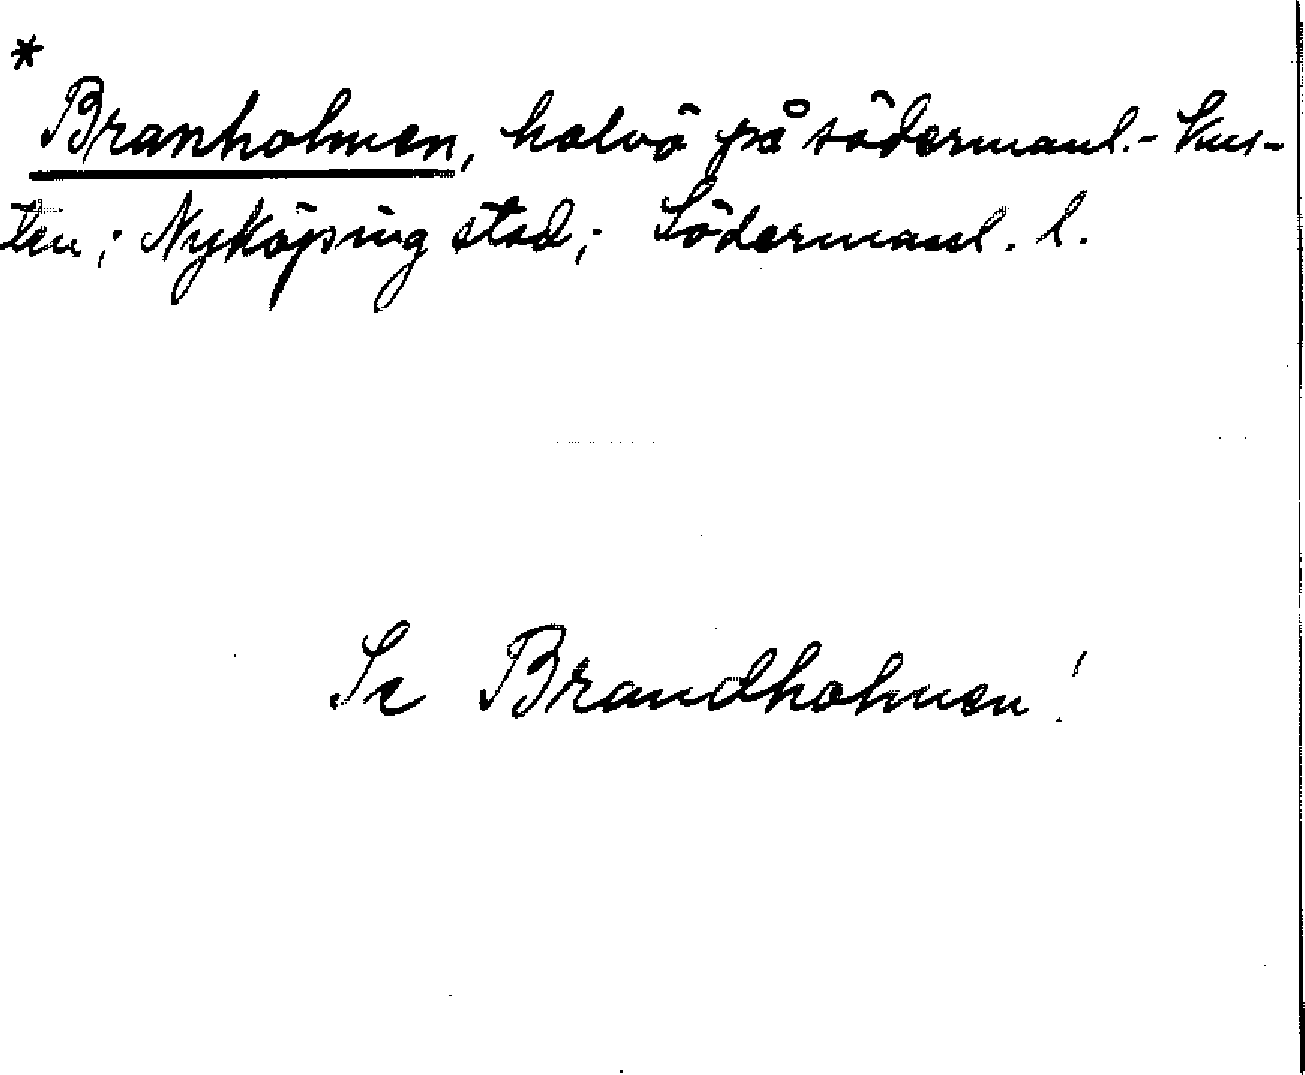 *
Branholmen, halvö på södermanl.- kus-
ten; Nyköping stad; Södermanl. l.
Se Brandholmen!